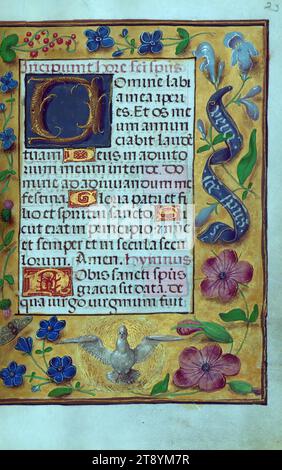 23
Incipiunt hore sci spus
Domine labi
a mea aperi
es. Et os me
um annun
ciabit laude
tuam Deus in adiuto
rium meum intende. Do
mine ad adiuvandum me
festina Gloria patri et fi
lio et spiritui sancto Si
cut erat in principio et nunc
et semper et in secula secu
lorum. Amen. Hymnus
Nobis sancti spus
gracia sit data. De
qua virgo virginum fuit
alamy
Image ID: 2T8YM7R
www.alamy.com